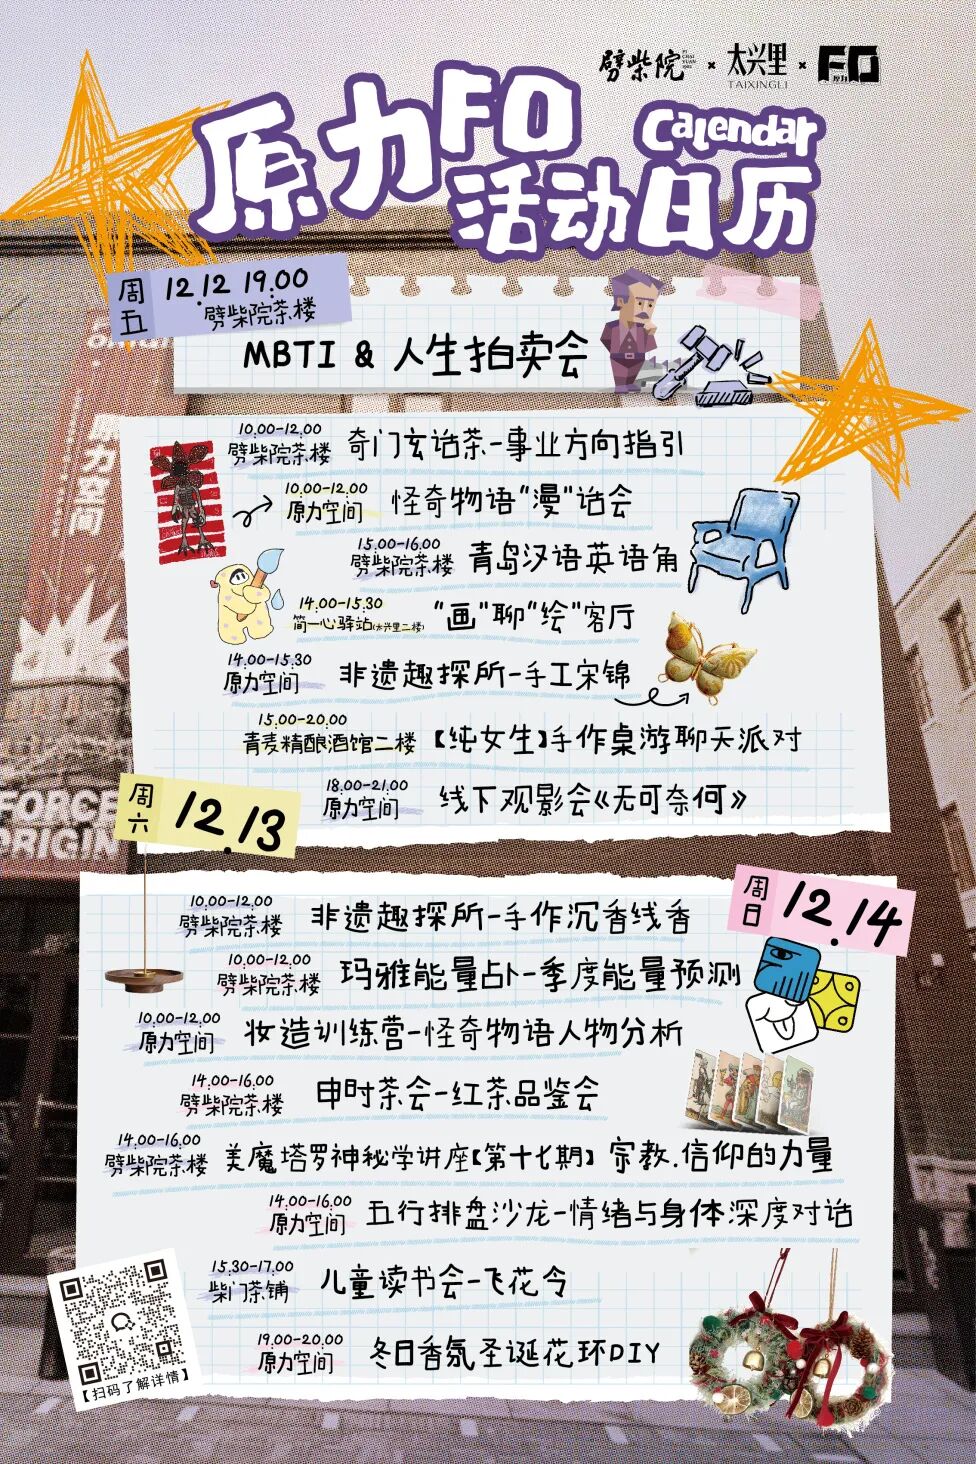 劈柴院 PI CHAI YUAN 1902 × 太兴里 TAIXINGLI × FO 原力
原力FO Calendar
活动日历
周五 12.12 19:00 劈柴院茶楼
MBTI & 人生拍卖会
10:00-12:00 劈柴院茶楼 奇门玄话茶-事业方向指引
10:00-12:00 原力空间 怪奇物语"漫"话会
15:00-16:00 劈柴院茶楼 青岛汉语英语角
14:00-15:30 简一心驿站(太兴里二楼) "画"聊"绘"客厅
14:00-15:30 原力空间 非遗趣探所-手工宋锦
15:00-20:00 青麦精酿酒馆二楼 【纯女生】手作桌游聊天派对
18:00-21:00 原力空间 线下观影会《无可奈何》
周六 12.13
周日 12.14
10:00-12:00 劈柴院茶楼 非遗趣探所-手作沉香线香
10:00-12:00 劈柴院茶楼 玛雅能量占卜-季度能量预测
10:00-12:00 原力空间 妆造训练营-怪奇物语人物分析
14:00-16:00 劈柴院茶楼 申时茶会-红茶品鉴会
14:00-16:00 劈柴院茶楼 美魔塔罗神秘学讲座【第十七期】宗教.信仰的力量
14:00-16:00 原力空间 五行排盘沙龙-情绪与身体深度对话
15:30-17:00 柴门茶铺 儿童读书会-飞花令
19:00-20:00 原力空间 冬日香氛圣诞花环DIY
【扫码了解详情】
原力空间
FORCE
ORIGIN